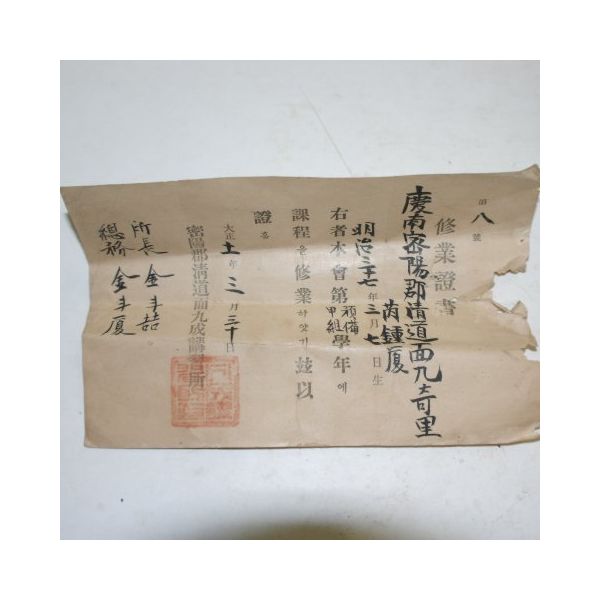 第八號
修業證書
慶南密陽郡清道面九奇里
芮鍾厦
明治三十七年三月七日生
右者本會第預備甲組學年에
課程을修業하얏기玆以
證홈
大正十一年三月三十日
密陽郡清道面九成講習所
所長 金斗喆
總務 金斗厦